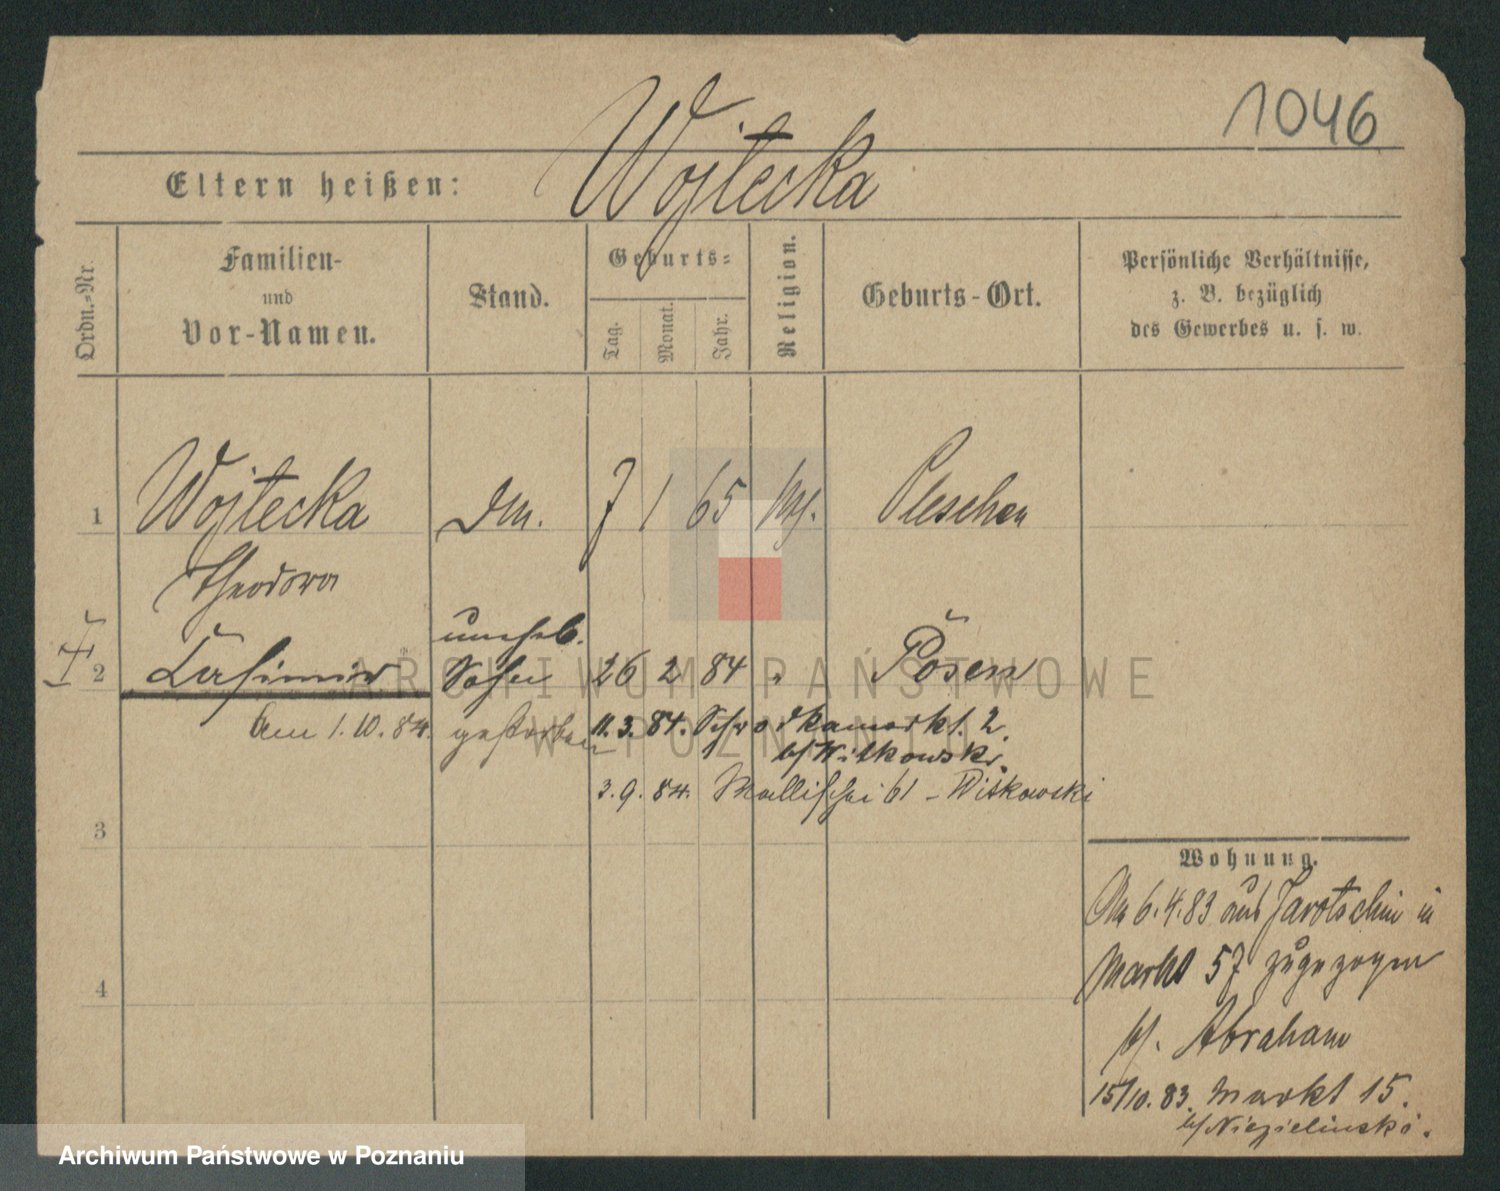 1046
Wojtecka
Eltern heißen:
Ordn.=Nr
Familien-
und
Vor-Namen.
Stand.
Geburts-
Tag.
Monat.
Jahr.
Religion.
Geburts-Ort.
Persönliche Verhältnisse,
z. B. bezüglich
des Gewerbes u. s. w.
1 Wojtecka Dm. 7 1 65 Pleschen
Theodora
unehel.
2 Casimir Sohn 26 2 84 " Posen
Am 1.10.84. gestorben 11.3.84. Schrodkamarkt 2.
b/ Witkowski.
3.9.84. Wallischei 61 - Witkowski
3
4
Wohnung.
Am 6.4.83 aus Jarotschin in
Markt 57 zugezogen
b/. Abraham
15/10.83. Markt 15.
b/ Niezielinski.
ARCHIWUM PAŃSTWOWE
W POZNANIU
Archiwum Państwowe w Poznaniu